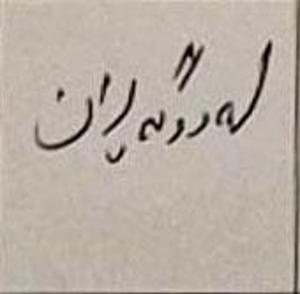 لەدوگەڕان